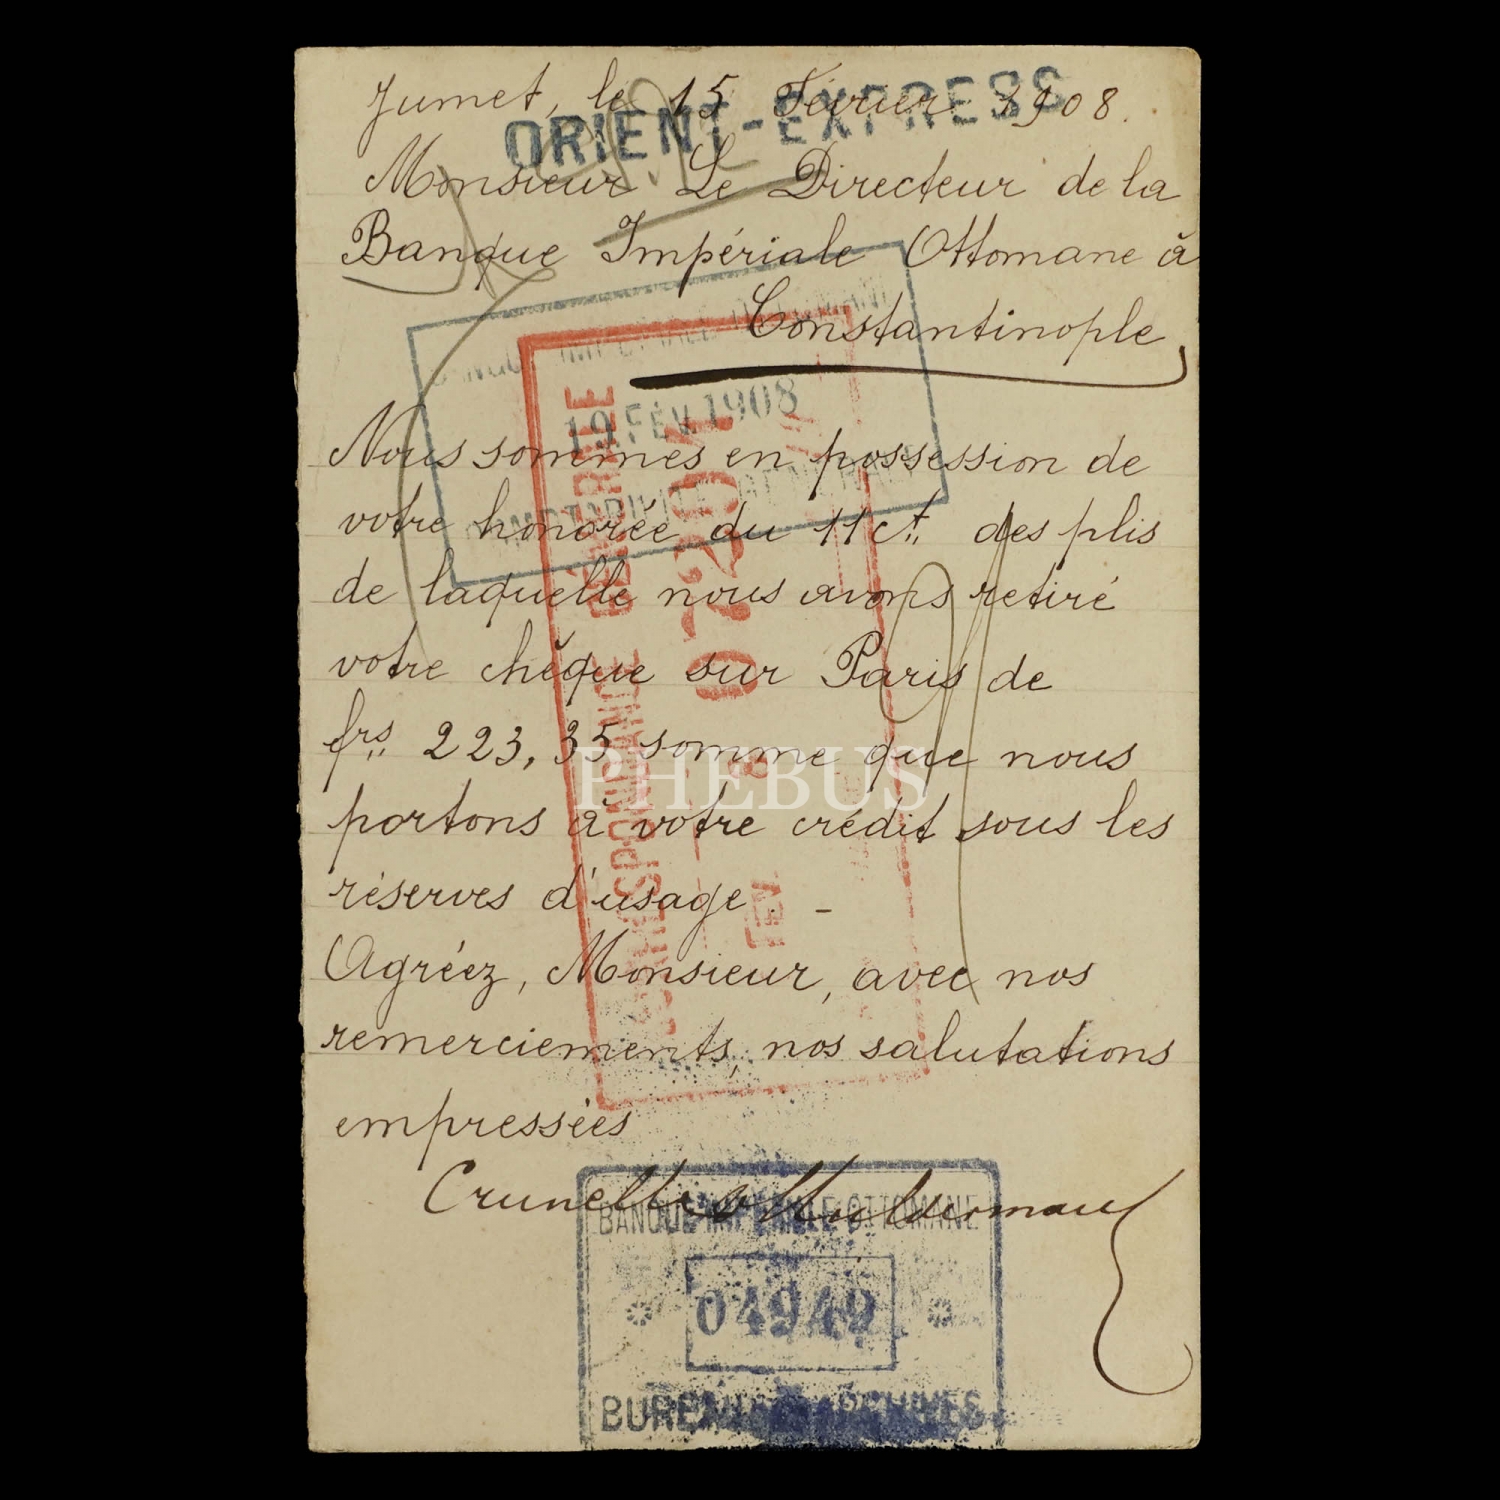 Jumet, le 15 Février 1908.
ORIENT-EXPRESS
Monsieur Le Directeur de la
Banque Impériale Ottomane à
Constantinople
19 FÉV. 1908
Nous sommes en possession de
votre honorée du 11 ct. des plis
de laquelle nous avons retiré
votre chèque sur Paris de
frs. 223,35 somme que nous
portons à votre crédit sous les
réserves d'usage. -
Agréez, Monsieur, avec nos
remerciements, nos salutations
empressées
CORRESPONDANCE GÉNÉRALE
FEV.
PHEBUS
BANQUE IMPÉRIALE OTTOMANE
BUREAU ARCHIVES